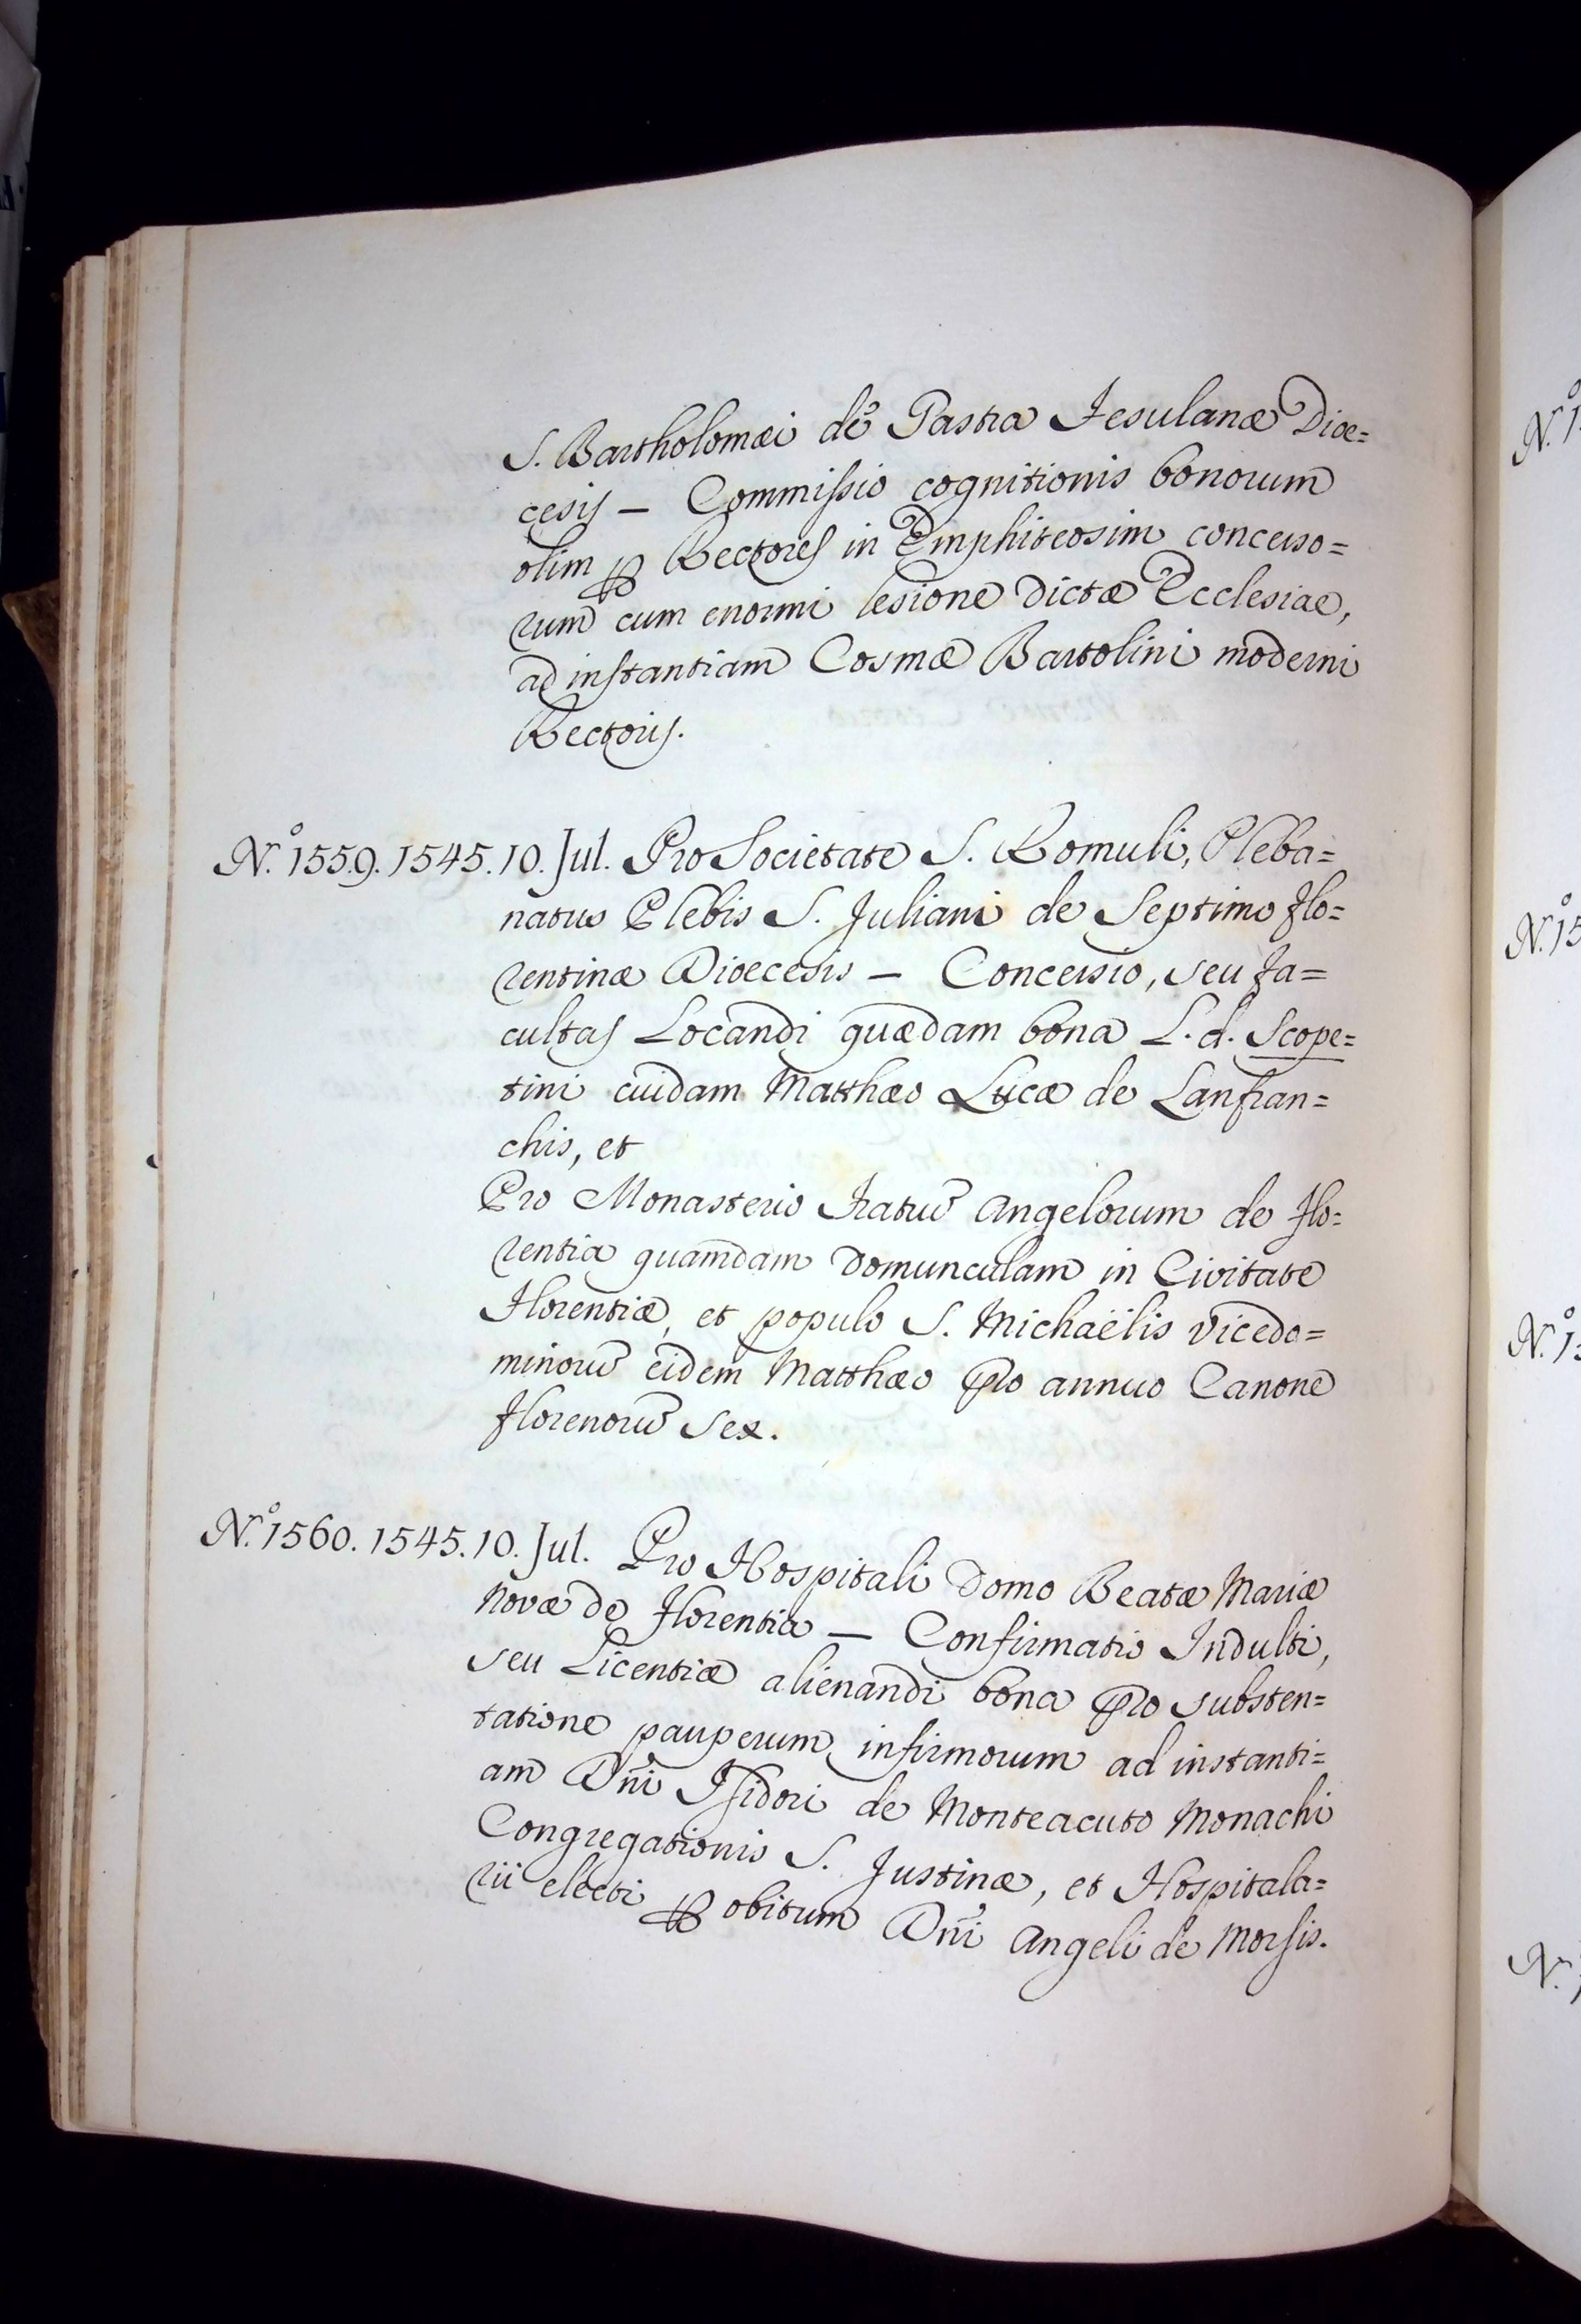 S. Bartholomæi de Pastra Fesulanæ Dioe=
cesis — Commissio cognitionis bonorum
olim Rectores in Emphiteosim concesso=
rum cum enormi lesione dictæ Ecclesiae,
ad instantiam Cosmæ Bartolini moderni
Rectoris.
N.º 1559. 1545. 10. Jul. Pro Societate S. Romuli, Pleba=
natus Plebis S. Juliani de Septimo Flo=
rentinæ Dioecesis — Concessio, seu Fa=
cultas Locandi quædam bona L. d. Scope=
tini cuidam Matthæo Lucæ de Lanfran=
chis, et
Pro Monasterio Fratrū Angelorum de Flo=
rentia quamdam domunculam in Civitate
Florentiæ, et populo S. Michaëlis Vicedo=
minorū eidem Matthæo pro annuo Canone
Florenorū sex.
N.º 1560. 1545. 10. Jul. Pro Hospitali Domo Beatæ Mariæ
Novæ de Florentia — Confirmatio Indulti,
seu Licentiæ alienandi bona pro susten=
tatione pauperum infirmorum ad instanti=
am Dñi Isidori de Monteacuto Monachi
Congregationis S. Justinæ, et Hospitala=
rii electi obitum Dñi Angeli de Morsis.
N.º 1
N.º 15
N.º 1
N.